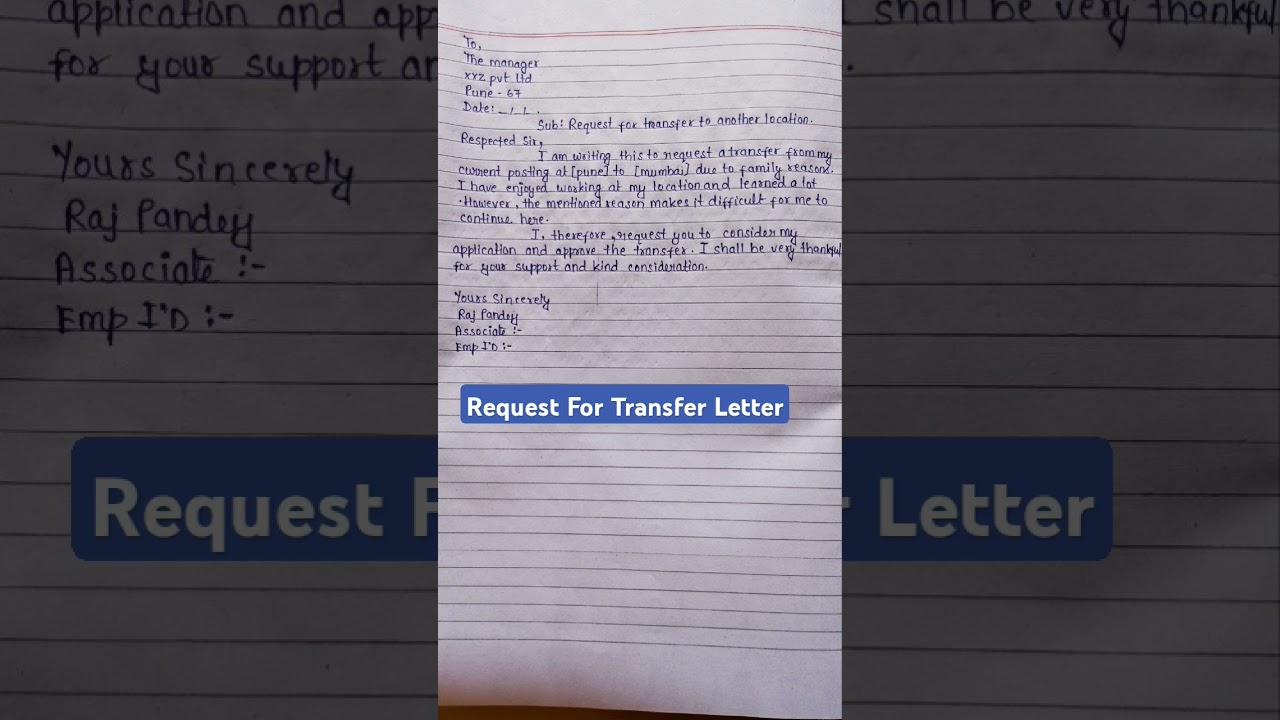 application and app
shall be very thankful
for your support an
.
Yours Sincerely
Raj Pandey
Associate :-
Emp I'D :-
Request F
r Letter
To,
The manager
xyz pvt ltd
Pune - 67
Date: _/_/_.
Sub: Request for transfer to another location.
Respected Sir,
I am writing this to request a transfer from my
current posting at [pune] to [mumbai] due to family reasons.
I have enjoyed working at my location and learned a lot
.However, the mentioned reason makes it difficult for me to
continue here.
I, therefore, request you to consider my
application and approve the transfer. I shall be very thankful
for your support and kind consideration.
Yours Sincerely
Raj Pandey
Associate :-
Emp I'D :-
Request For Transfer Letter